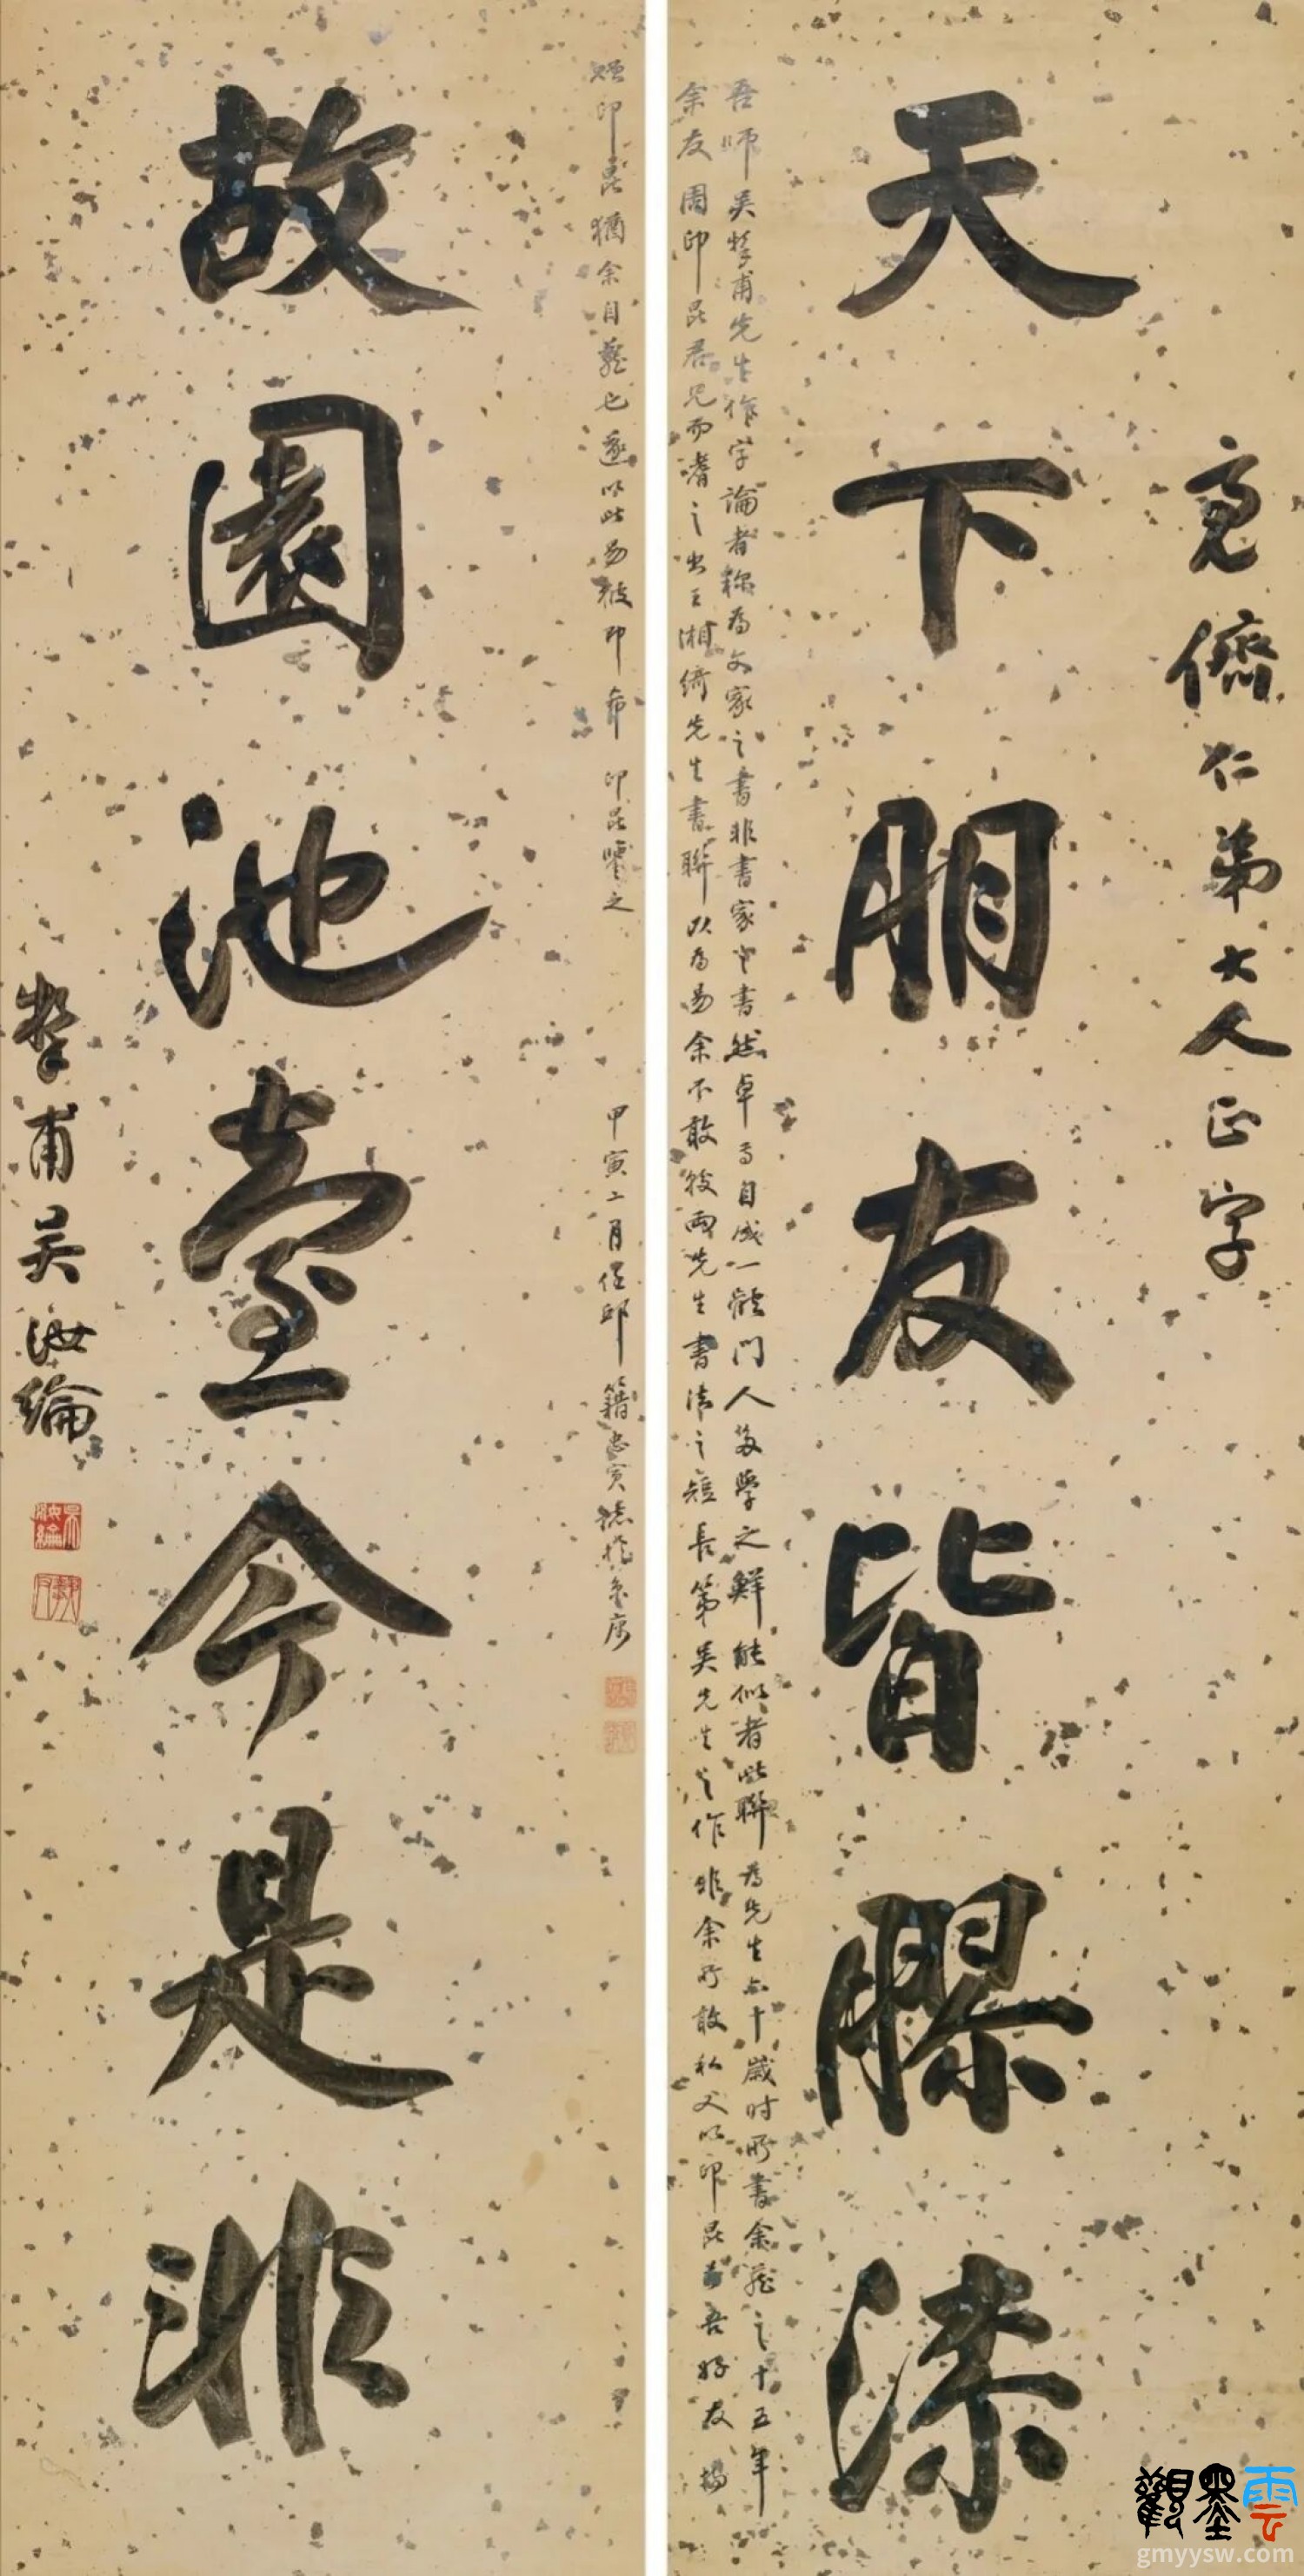 亮儕仁弟大人正字
天下朋友皆膠漆
吾師吳摯甫先生作字論者稱為文家之書非書家之書然卓爾自成一體門人多學之鮮能似者此聯為先生六十歲時所書余藏之十五年
余友周印昆君兄而嗜之出王湘綺先生書聯以為易余不敢較兩先生書法之短長第吳先生之作非余所敢私又以印昆為吾好友揚
贈印昆猶余自藏也遂以此易彼即希印昆鑒之
甲寅二月任邱籍忠寅
故園池臺今是非
摯甫吳汝綸
吳汝綸
觀墨雲
gmyysw.com